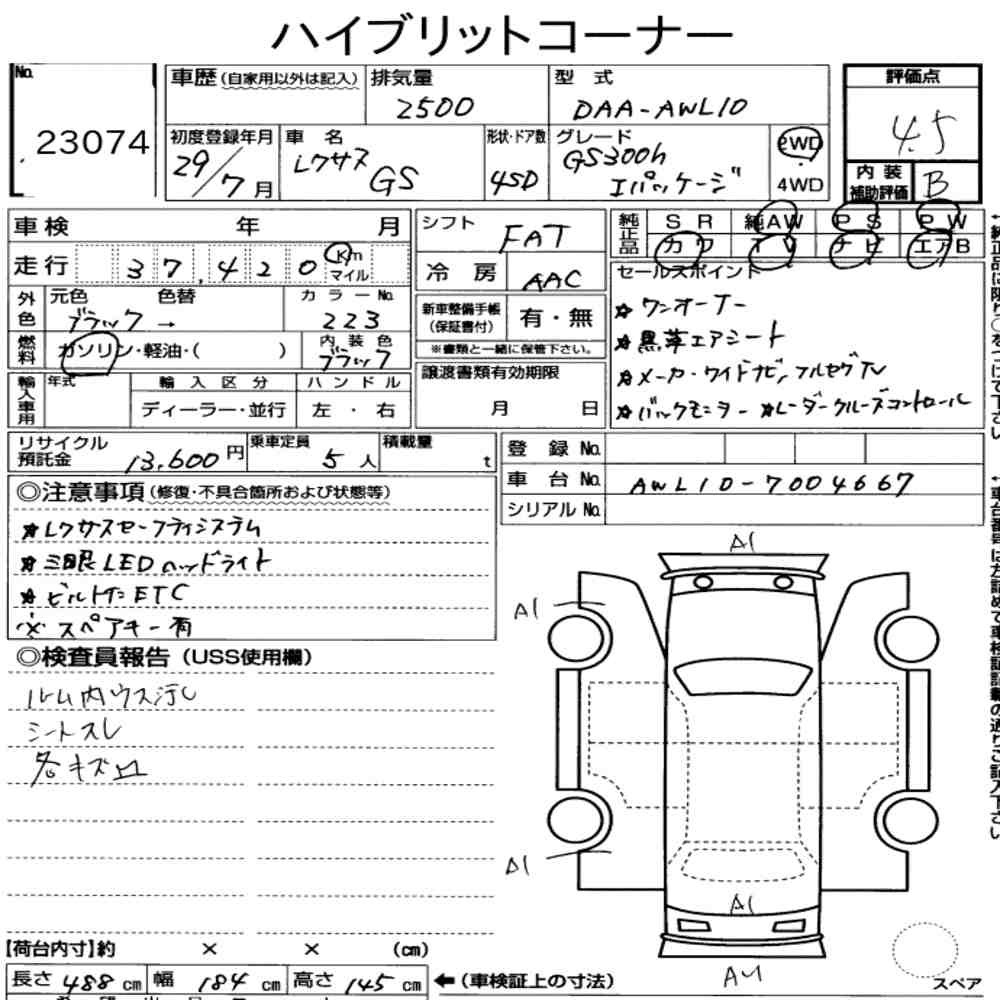 ハイブリットコーナー
No.
23074
車歴(自家用以外は記入)
排気量
2500
型 式
DAA-AWL10
初度登録年月
29/7月
車 名
レクサス GS
形状・ドア数
4SD
グレード
GS300h
Iパッケージ
2WD
4WD
評価点
4.5
内装補助評価
B
車検 年 月
走行 37,420 Km マイル
外色
元色 色替
ブラック→
カラーNo.
223
燃料
ガソリン・軽油・( )
内装色
ブラック
輸入車用
年式
輸入区分
ディーラー・並行
ハンドル
左・右
シフト
FAT
冷房
AAC
新車整備手帳(保証書付)
有・無
※書類と一緒に保管下さい。
譲渡書類有効期限
月 日
純正品
SR 純AW PS PW
カワ TV ナビ エアB
セールスポイント
★ワンオーナー
★黒革エアシート
★メーカーワイドナビ,フルセグTV
★バックモニター ★レーダークルーズコントロール
リサイクル預託金
13,600円
乗車定員
5人
積載量
t
登録No.
車台No. AWL10-7004667
シリアルNo.
◎注意事項(修復・不具合箇所および状態等)
★レクサスセーフティシステム
★三眼LEDヘッドライト
★ビルトインETC
※スペアキー有
◎検査員報告(USS使用欄)
ルーム内ウス汚レ
シートスレ
各キズ凹
A1
A1
A1
A1
A4
スペア
【荷台内寸】約 × × (cm)
長さ 488 cm 幅 184 cm 高さ 145 cm
←(車検証上の寸法)